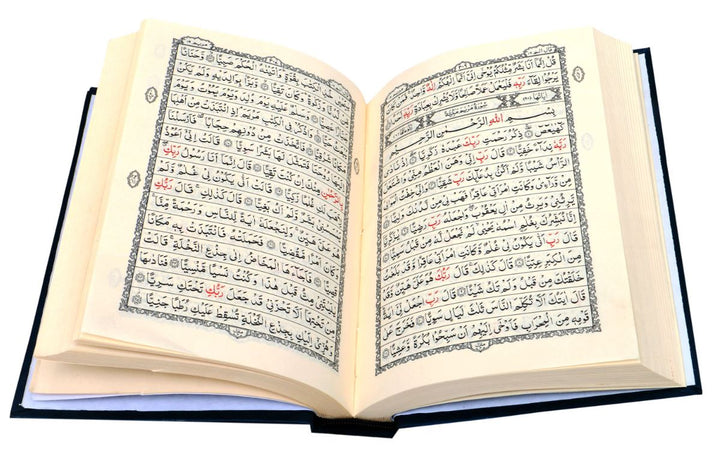 قُلْ إِنَّمَا أَنَا بَشَرٌ مِّثْلُكُمْ يُوحَىٰ إِلَيَّ أَنَّمَا إِلَٰهُكُمْ إِلَٰهٌ وَاحِدٌ فَمَنْ كَانَ
يَرْجُوا لِقَاءَ رَبِّهِ فَلْيَعْمَلْ عَمَلًا صَالِحًا وَلَا يُشْرِكْ بِعِبَادَةِ رَبِّهِ أَحَدًا
سُورَةُ مَرْيَمَ مَكِّيَّةٌ
بِسْمِ اللهِ الرَّحْمٰنِ الرَّحِيمِ
كهيعص ذِكْرُ رَحْمَتِ رَبِّكَ عَبْدَهُ زَكَرِيَّا إِذْ نَادَىٰ
رَبَّهُ نِدَاءً خَفِيًّا قَالَ رَبِّ إِنِّي وَهَنَ الْعَظْمُ مِنِّي وَاشْتَعَلَ
الرَّأْسُ شَيْبًا وَلَمْ أَكُنْ بِدُعَائِكَ رَبِّ شَقِيًّا وَإِنِّي خِفْتُ الْمَوَالِيَ
مِنْ وَرَاءِي وَكَانَتِ امْرَأَتِي عَاقِرًا فَهَبْ لِي مِنْ لَدُنْكَ وَلِيًّا
يَرِثُنِي وَيَرِثُ مِنْ آلِ يَعْقُوبَ وَاجْعَلْهُ رَبِّ رَضِيًّا يٰزَكَرِيَّا
إِنَّا نُبَشِّرُكَ بِغُلٰمٍ اسْمُهُ يَحْيَىٰ لَمْ نَجْعَلْ لَهُ مِنْ قَبْلُ سَمِيًّا
قَالَ رَبِّ أَنَّىٰ يَكُونُ لِي غُلٰمٌ وَكَانَتِ امْرَأَتِي عَاقِرًا وَقَدْ بَلَغْتُ
مِنَ الْكِبَرِ عِتِيًّا قَالَ كَذٰلِكَ قَالَ رَبُّكَ هُوَ عَلَيَّ هَيِّنٌ وَقَدْ
خَلَقْتُكَ مِنْ قَبْلُ وَلَمْ تَكُ شَيْئًا قَالَ رَبِّ اجْعَلْ لِي آيَةً
قَالَ آيَتُكَ أَلَّا تُكَلِّمَ النَّاسَ ثَلٰثَ لَيَالٍ سَوِيًّا فَخَرَجَ عَلَىٰ
قَوْمِهِ مِنَ الْمِحْرَابِ فَأَوْحَىٰ إِلَيْهِمْ أَنْ سَبِّحُوا بُكْرَةً وَعَشِيًّا
يٰيَحْيَىٰ خُذِ الْكِتٰبَ بِقُوَّةٍ وَآتَيْنٰهُ الْحُكْمَ صَبِيًّا وَحَنَانًا
مِنْ لَدُنَّا وَزَكٰوةً وَكَانَ تَقِيًّا وَبَرًّا بِوَالِدَيْهِ وَلَمْ يَكُنْ
جَبَّارًا عَصِيًّا وَسَلٰمٌ عَلَيْهِ يَوْمَ وُلِدَ وَيَوْمَ يَمُوتُ وَيَوْمَ
يُبْعَثُ حَيًّا وَاذْكُرْ فِي الْكِتٰبِ مَرْيَمَ إِذِ انْتَبَذَتْ مِنْ أَهْلِهَا
مَكَانًا شَرْقِيًّا فَاتَّخَذَتْ مِنْ دُونِهِمْ حِجَابًا فَأَرْسَلْنَا
إِلَيْهَا رُوحَنَا فَتَمَثَّلَ لَهَا بَشَرًا سَوِيًّا قَالَتْ إِنِّي أَعُوذُ
بِالرَّحْمٰنِ مِنْكَ إِنْ كُنْتَ تَقِيًّا قَالَ إِنَّمَا أَنَا رَسُولُ رَبِّكِ
لِأَهَبَ لَكِ غُلٰمًا زَكِيًّا قَالَتْ أَنَّىٰ يَكُونُ لِي غُلٰمٌ وَلَمْ
يَمْسَسْنِي بَشَرٌ وَلَمْ أَكُ بَغِيًّا قَالَ كَذٰلِكِ قَالَ رَبُّكِ
هُوَ عَلَيَّ هَيِّنٌ وَلِنَجْعَلَهُ آيَةً لِلنَّاسِ وَرَحْمَةً مِنَّا
وَكَانَ أَمْرًا مَقْضِيًّا فَحَمَلَتْهُ فَانْتَبَذَتْ بِهِ مَكَانًا
قَصِيًّا فَأَجَاءَهَا الْمَخَاضُ إِلَىٰ جِذْعِ النَّخْلَةِ قَالَتْ
يٰلَيْتَنِي مِتُّ قَبْلَ هٰذَا وَكُنْتُ نَسْيًا مَنْسِيًّا فَنَادٰهَا
مِنْ تَحْتِهَا أَلَّا تَحْزَنِي قَدْ جَعَلَ رَبُّكِ تَحْتَكِ سَرِيًّا
وَهُزِّي إِلَيْكِ بِجِذْعِ النَّخْلَةِ تُسٰقِطْ عَلَيْكِ رُطَبًا جَنِيًّا